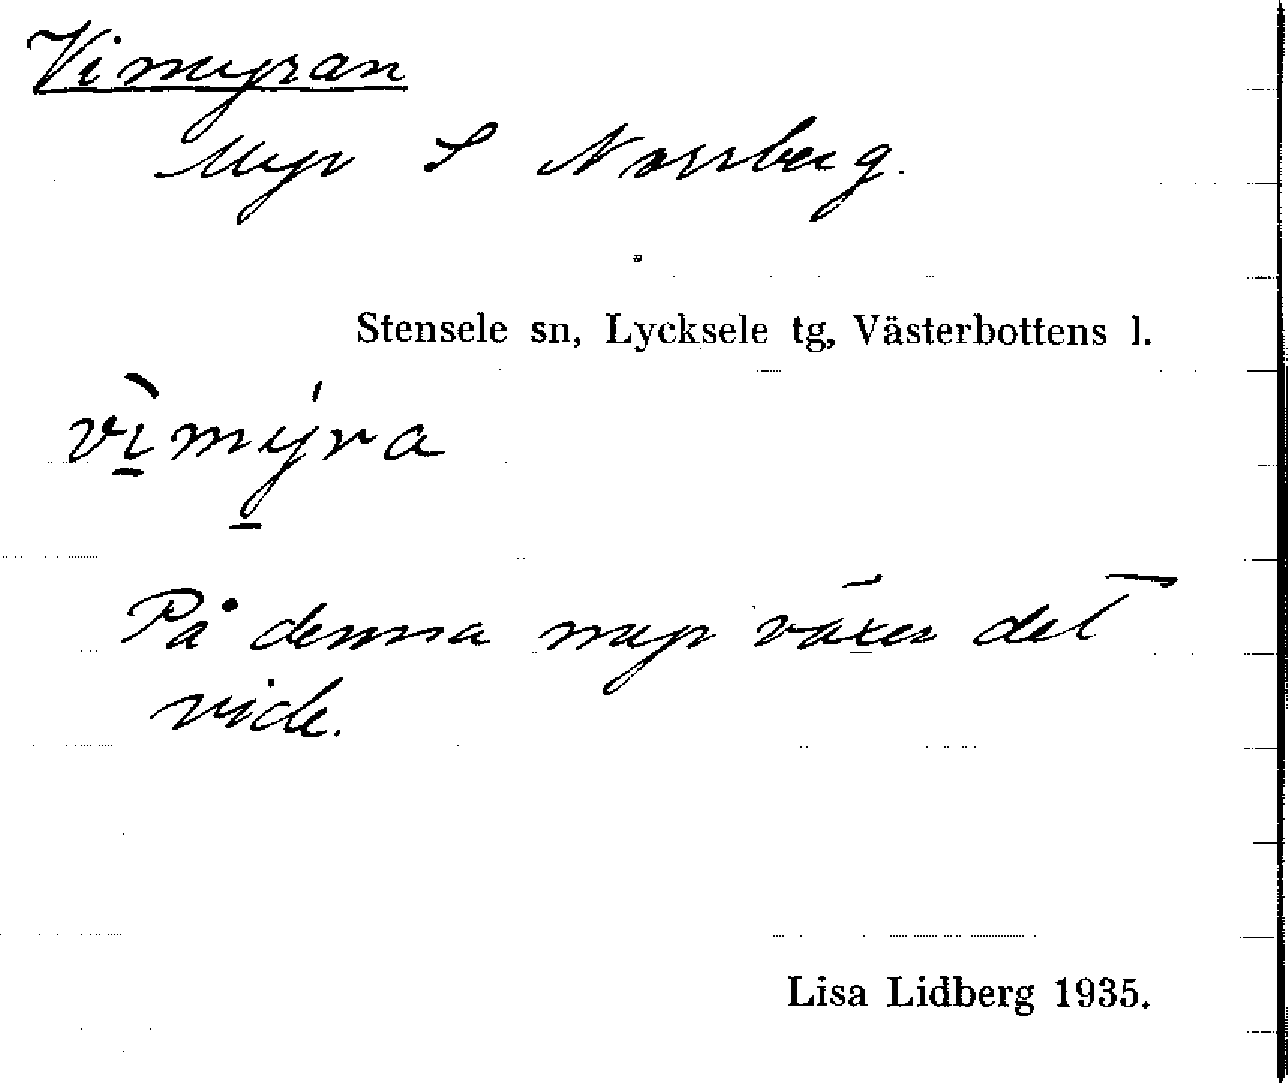 Vimyran
Myr S Norrberg.
Stensele sn, Lycksele tg, Västerbottens l.
vì̠mý̠ra
På denna myr växer det
vide.
Lisa Lidberg 1935.